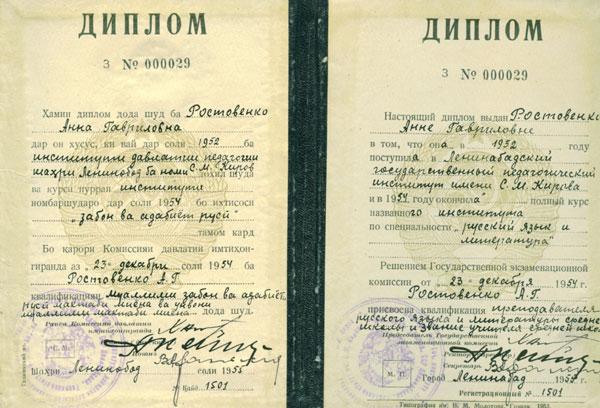 ДИПЛОМ
З № 000029
Хамин диплом дода шуд ба Ростовенко
Анна Гавриловна
дар он хусус, ки вай дар соли 1952 ба
институти давлатии педагогии
шахри Ленинобод ба номи С.М. Киров дохил шуда
ва курси пурраи институти
номбаршударо дар соли 1954 ба ихтисоси
"забон ва адабиёт русӣ"
тамом кард
Бо қарори Комиссияи давлатии имтиҳон-
гиранда аз "23" декабри соли 1954 ба
Ростовенко А.Г.
квалификацияи муаллими забон ва адабиёт
русӣ мактаби миёна ва унвони
муаллими мактаби миёна дода шуд.
Раиси Комиссияи давлатии
имтиҳонгиранда
Шаҳри Ленинобод соли 1955
№ Қайд 1501
ДИПЛОМ
З № 000029
Настоящий диплом выдан Ростовенко
Анне Гавриловне
в том, что она в 1952 году
поступила в Ленинабадский
государственный педагогический
институт имени С.М. Кирова
и в 1954 году окончила полный курс
названного института
по специальности "русский язык и
литература"
Решением Государственной экзаменационной
комиссии от 23 декабря 1954 г.
Ростовенко А.Г.
присвоена квалификация преподавателя
русского языка и литературы средне
школы и звание учителя средней шко
Председатель Государственной
экзаменационной комиссии
Директор
Секретарь
М. П.
Город Ленинабад 1955 г.
Регистрационный № 1501